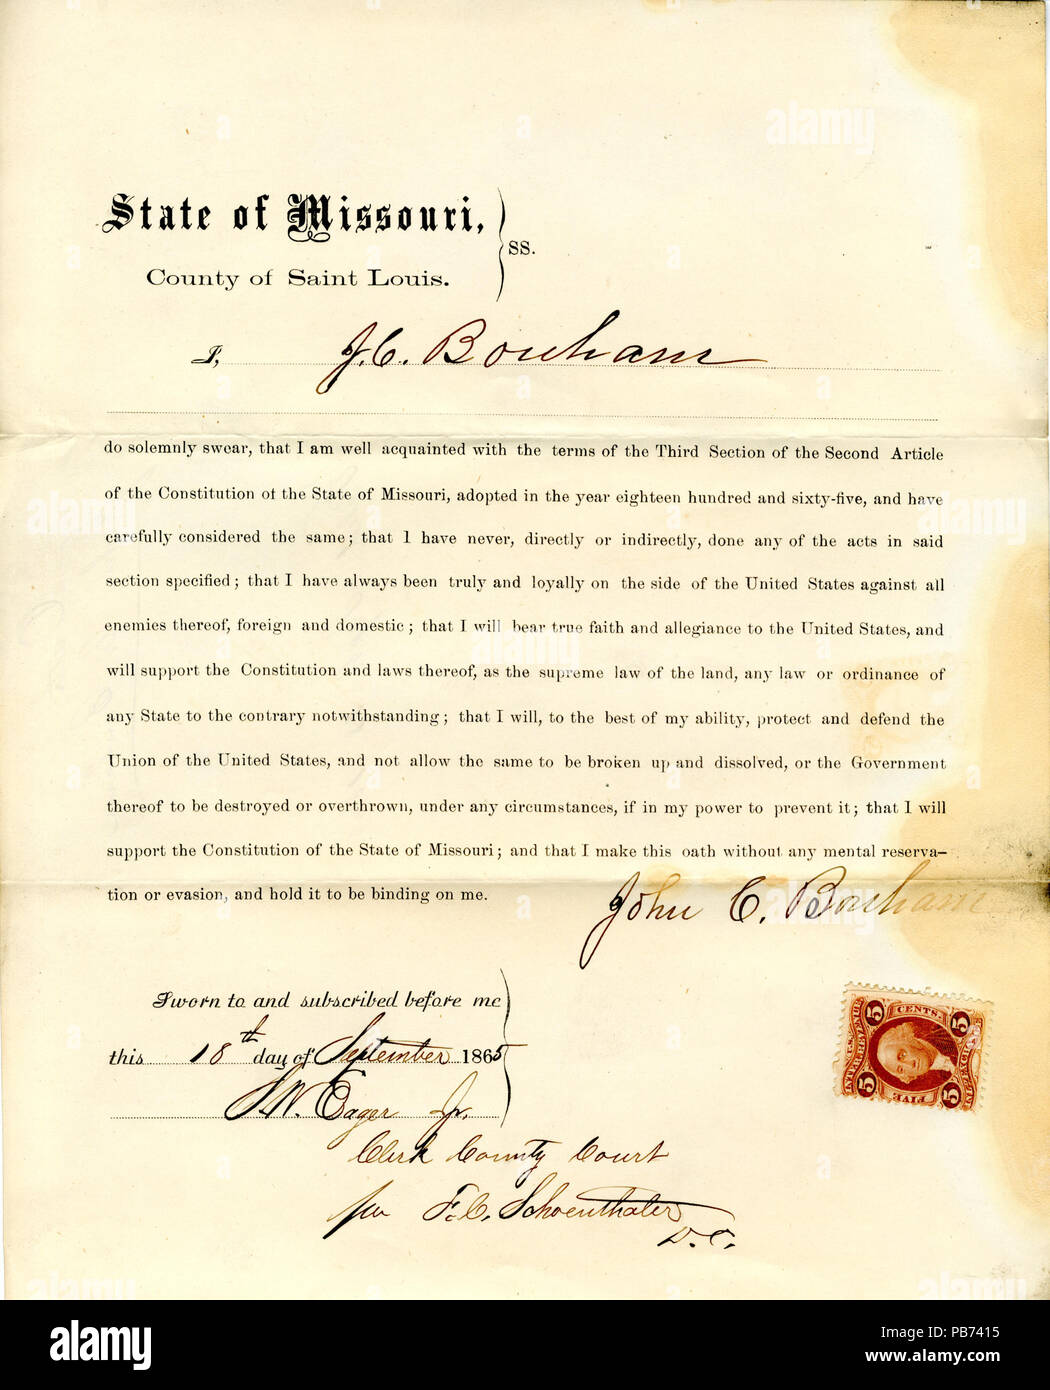 State of Missouri,
County of Saint Louis.
SS.
I, J. C. Bonham
do solemnly swear, that I am well acquainted with the terms of the Third Section of the Second Article
of the Constitution of the State of Missouri, adopted in the year eighteen hundred and sixty-five, and have
carefully considered the same; that I have never, directly or indirectly, done any of the acts in said
section specified; that I have always been truly and loyally on the side of the United States against all
enemies thereof, foreign and domestic; that I will bear true faith and allegiance to the United States, and
will support the Constitution and laws thereof, as the supreme law of the land, any law or ordinance of
any State to the contrary notwithstanding; that I will, to the best of my ability, protect and defend the
Union of the United States, and not allow the same to be broken up and dissolved, or the Government
thereof to be destroyed or overthrown, under any circumstances, if in my power to prevent it; that I will
support the Constitution of the State of Missouri; and that I make this oath without any mental reserva-
tion or evasion, and hold it to be binding on me.
John C. Bonham
Sworn to and subscribed before me
this 18th day of September 1865
S.W. Eager Jr.
Clerk County Court
per F. C. Schoenthaler
D. C.
5 CENTS. 5
U.S. INTER. REVENUE
5 FIVE 5
alamy
alamy
Image ID: PB7415
www.alamy.com